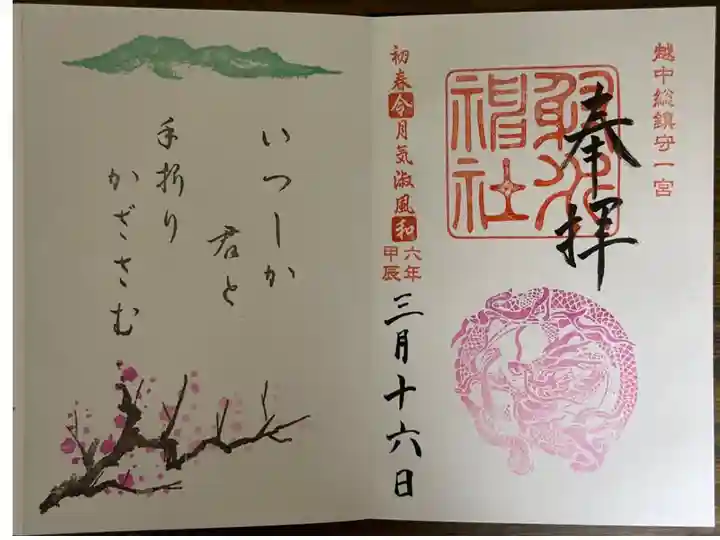 越中総鎮守一宮
奉拝
射水神社
初春令月気淑風和
六年
甲辰
三月十六日
いつしか
君と
手折り
かざさむ